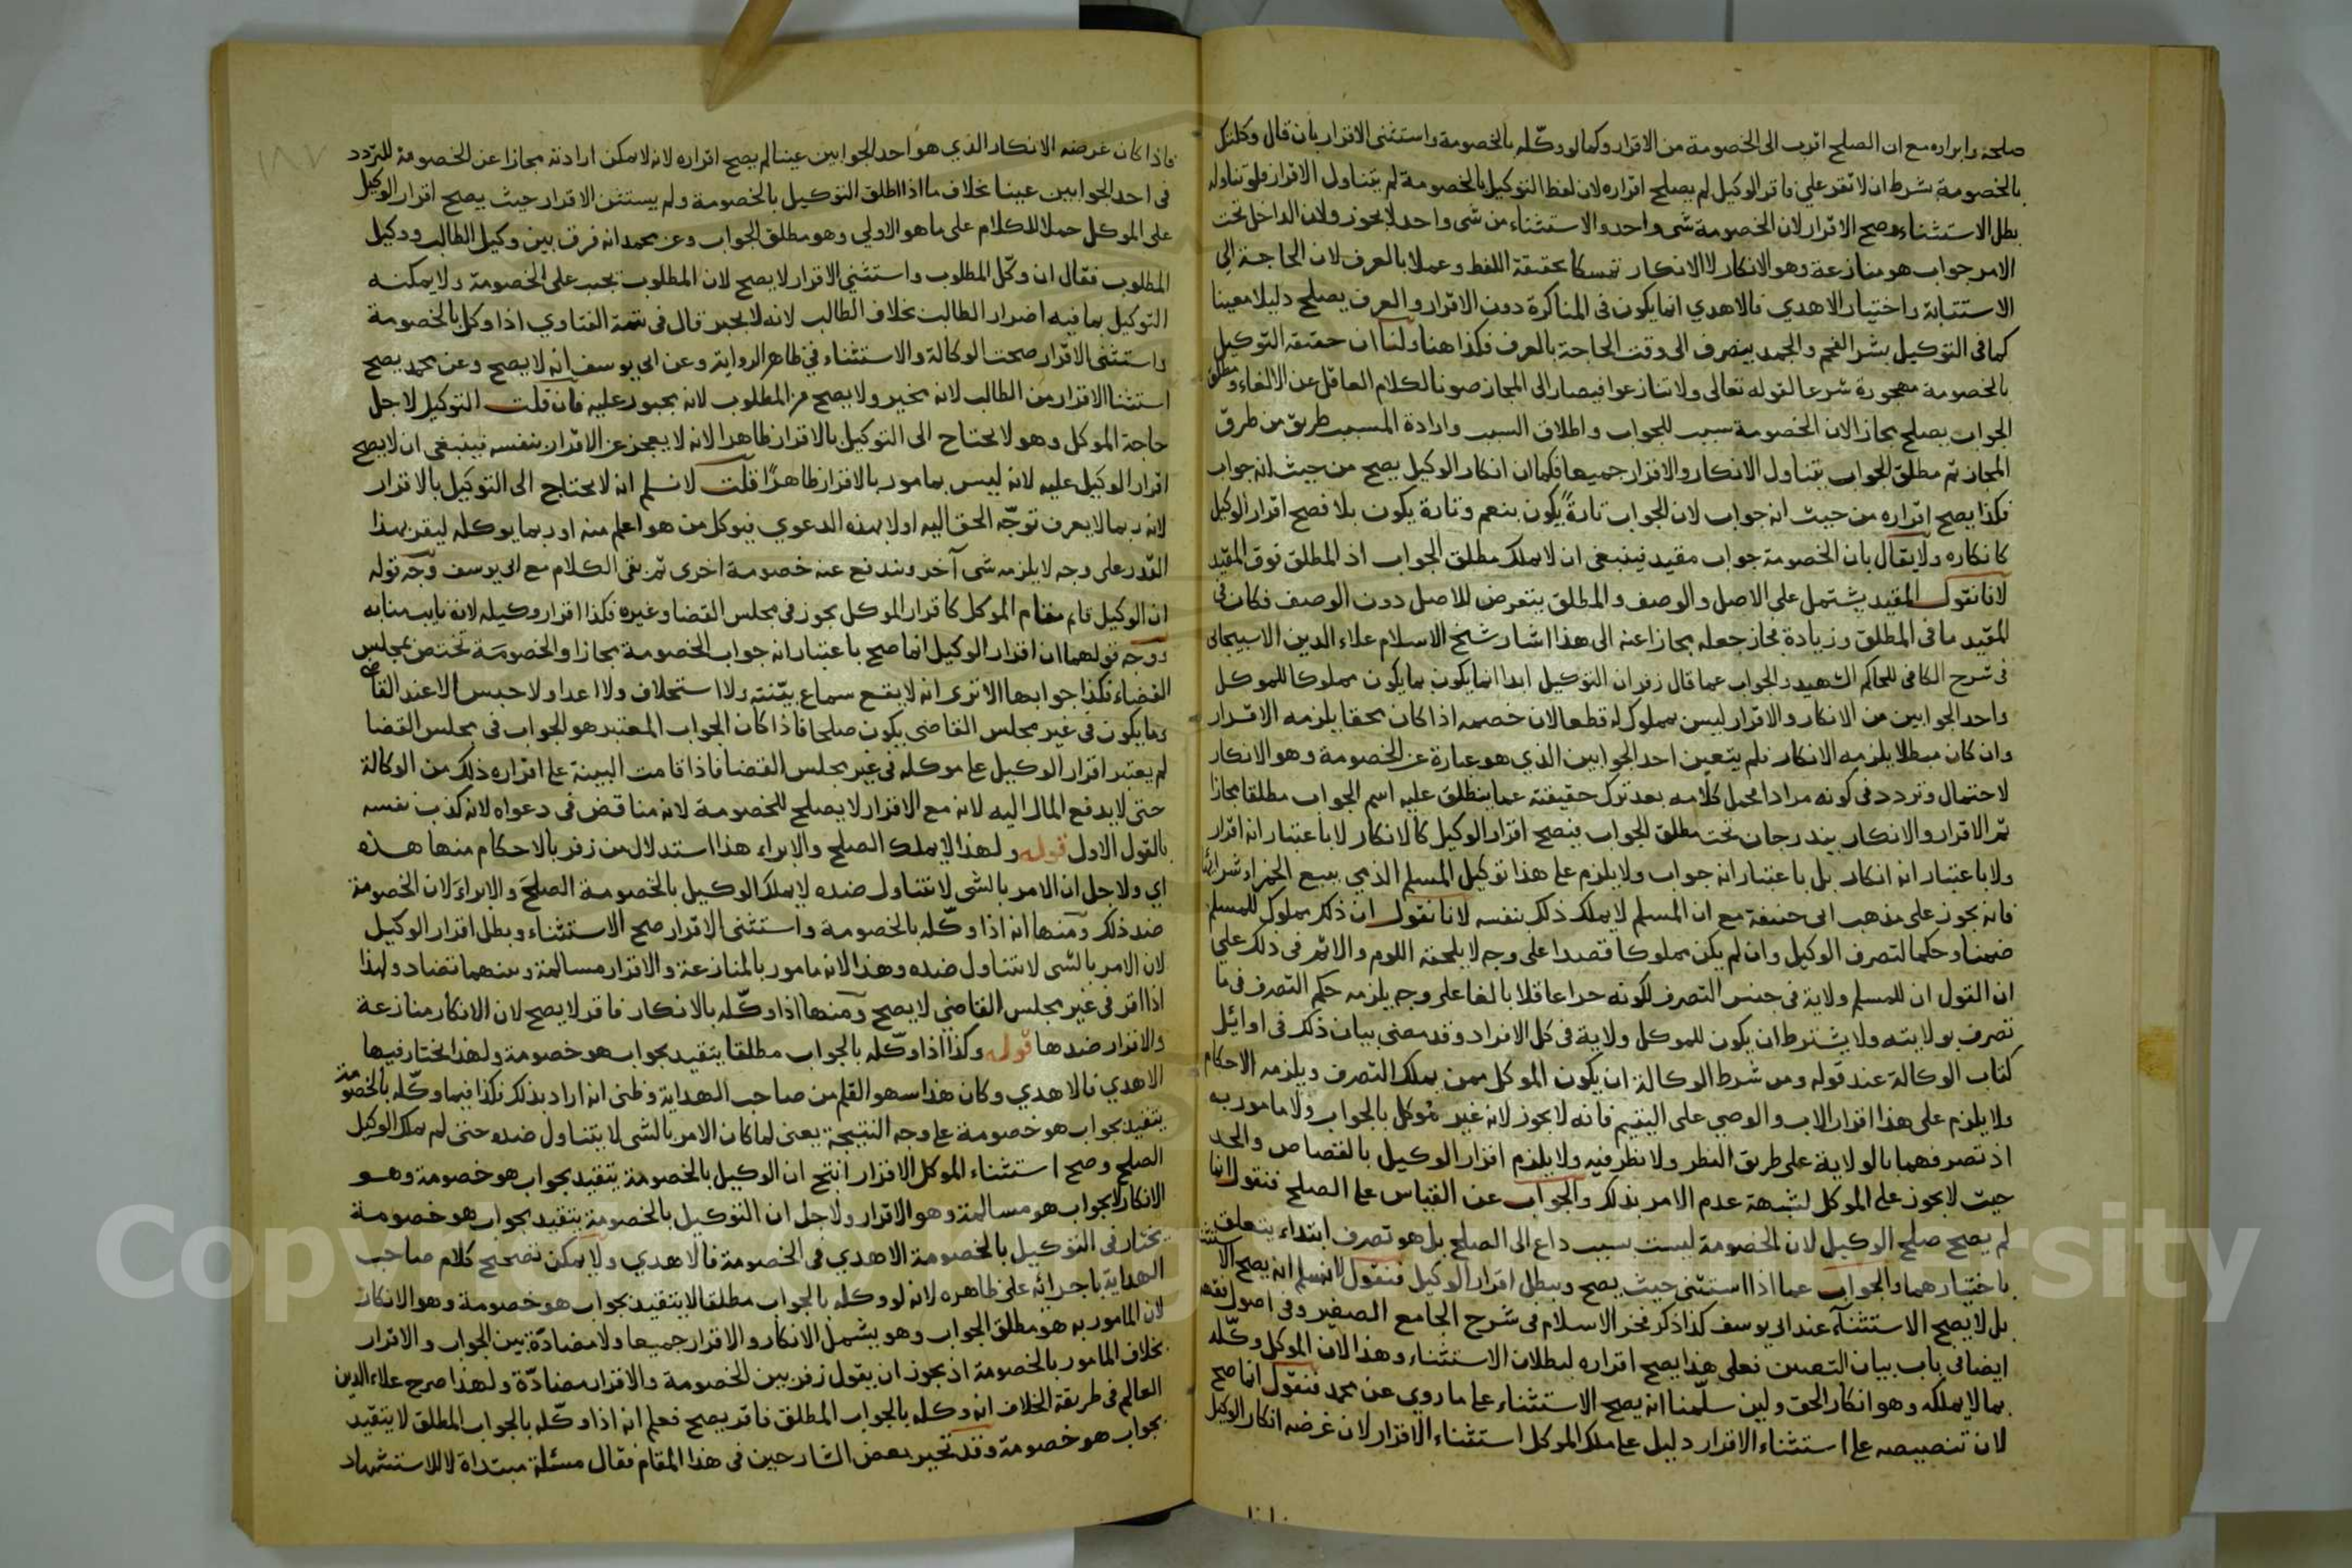 صلحه وابراره مع ان الصلح اقرب الى الخصومة من الاقرار وكما لو وكّله بالخصومة واستثنى الاقرار بان قال وكلتك
بالخصومة بشرط ان لا تقر علي فاقر الوكيل لم يصح اقراره لان لفظ التوكيل بالخصومة لم يتناول الاقرار فلو تناوله
بطل الاستثناء وصح الاقرار لان الخصومة شى واحد والاستثناء من شى واحد لا يجوز ولان الداخل تحت
الامر جواب هو منازعة وهو الانكار لا الانكار تمسكا بحقيقة اللفظ وعملا بالعرف لان الحاجة الى
الاستنابة واختيار الاهدي فالاهدي انما يكون فى المناكرة دون الاقرار والعرف يصلح دليلا معينا
كما فى التوكيل بشر الفحم والجمد ينصرف الى وقت الحاجة بالعرف فكذا هنا ولنا ان حقيقة التوكيل
بالخصومة مهجورة شرعا لقوله تعالى ولا تنازعوا فيصار الى المجاز صونا لكلام العاقل عن الالغاء ومطلق
الجواب يصلح مجازا لان الخصومة سبب للجواب واطلاق السبب وارادة المسبب طريق من طرق
المجاز ثم مطلق الجواب يتناول الانكار والاقرار جميعا فكما ان انكار الوكيل يصح من حيث انه جواب
فكذا يصح اقراره من حيث انه جواب لان الجواب تارةً يكون بنعم وتارة يكون بلا فصح اقرار الوكيل
كانكاره ولا يقال بان الخصومة جواب مقيد فينبغى ان لا يملك مطلق الجواب اذ المطلق فوق المقيد
لانا نقول المقيد يشتمل على الاصل والوصف والمطلق يتعرض للاصل دون الوصف فكان فى
المقيد ما فى المطلق وزيادة فجاز جعله مجازا عنه الى هذا اشار شيخ الاسلام علاء الدين الاسبيجابى
فى شرح الكافى للحاكم الشهيد والجواب عما قال زفر ان التوكيل ابدا انما يكون بما يكون مملوكا للموكل
واحد الجوابين من الانكار والاقرار ليس بمملوك له قطعا لان خصمه اذا كان محقا يلزمه الاقرار
وان كان مبطلا يلزمه الانكار فلم يتعين احد الجوابين الذي هو عبارة عن الخصومة وهو الانكار
لاحتمال وتردد فى كونه مرادا فحمل كلامه بعد ترك حقيقته عما ينطلق عليه اسم الجواب مطلقا مجازا
ثم الاقرار والانكار يندرجان تحت مطلق الجواب فيصح اقرار الوكيل كالانكار لا باعتبار انه اقرار
ولا باعتبار انه انكار بل باعتبار انه جواب ولا يلزم على هذا توكيل المسلم الذمي ببيع الخمر او شرائه
فانه يجوز على مذهب ابى حنيفة مع ان المسلم لا يملك ذلك بنفسه لانا نقول ان ذلك مملوك للمسلم
ضمنا وحكما لتصرف الوكيل وان لم يكن مملوكا قصدا على وجه لا يلحقه اللوم والاثم فى ذلك على
ان القول ان للمسلم ولاية فى جنس التصرف لكونه حرا عاقلا بالغا على وجه يلزمه حكم التصرف فى ما
تصرف بولايته ولا يشترط ان يكون للموكل ولاية فى كل الافراد وقد مضى بيان ذلك فى اوايل
كتاب الوكالة عند قوله ومن شرط الوكالة ان يكون الموكل ممن يملك التصرف ويلزمه الاحكام
ولا يلزم على هذا اقرار الاب والوصي على اليتيم فانه لا يجوز لانه غير مُوكل بالجواب ولا مامور به
اذ تصرفهما بالولاية على طريق النظر ولا نظر فيه ولا يلزم اقرار الوكيل بالقصاص والحد
حيث لا يجوز على الموكل لشبهة عدم الامر بذلك والجواب عن القياس على الصلح فنقول انما
لم يصح صلح الوكيل لان الخصومة ليست بسبب داع الى الصلح بل هو تصرف ابتداء يتعلق
باختيارهما والجواب عما اذا استثنى حيث يصح ويبطل اقرار الوكيل فنقول لا نسلم انه يصح الاستثناء
بل لا يصح الاستثنآء عند ابى يوسف كذا ذكر فخر الاسلام فى شرح الجامع الصغير وفى اصول الفقه
ايضا فى باب بيان التغيير فعلى هذا يصح اقراره لبطلان الاستثناء وهذا لان الموكل وكّله
بما لا يملكه وهو انكار الحق ولين سلّمنا انه يصح الاستثناء على ما روي عن محمد فنقول انما صح
لان تنصيصه على استثناء الاقرار دليل على ملك الموكل استثناء الاقرار لان غرضه انكار الوكيل
فاذا كان غرضه الانكار الذي هو احد الجوابين عينا لم يصح اقراره لانه لا يمكن ارادته مجازا عن الخصومة للتردد
فى احد الجوابين عينا بخلاف ما اذا اطلق التوكيل بالخصومة ولم يستثن الاقرار حيث يصح اقرار الوكيل
على الموكل حملا للكلام على ما هو الاولى وهو مطلق الجواب وعن محمد انه فرق بين وكيل الطالب ووكيل
المطلوب فقال ان وكّل المطلوب واستثنى الاقرار لا يصح لان المطلوب يجب على الخصومة ولا يمكنه
التوكيل بما فيه اضرار الطالب بخلاف الطالب لانه لا يجبر قال فى تتمة الفتاوي اذا وكل بالخصومة
واستثنى الاقرار صحت الوكالة والاستثناء فى ظاهر الرواية وعن ابى يوسف انه لا يصح وعن محمد يصح
استثنا الاقرار من الطالب لانه مخير ولا يصح من المطلوب لانه مجبور عليه فان قلت التوكيل لاجل
حاجة الموكل وهو لا يحتاج الى التوكيل بالاقرار ظاهرا لانه لا يعجز عن الاقرار بنفسه فينبغى ان لا يصح
اقرار الوكيل عليه لانه ليس بمامور بالاقرار ظاهرًا قلت لا نسلم انه لا يحتاج الى التوكيل بالاقرار
لانه ربما لا يعرف توجّه الحق اليه اولا بهذه الدعوي فيوكل من هو اعلم منه او ربما يوكله ليقر بهذا
القدر على وجه لا يلزمه شى آخر ويندفع عنه خصومة اخرى ثم بقى الكلام مع ابى يوسف وجه قوله
ان الوكيل قايم مقام الموكل كاقرار الموكل يجوز فى مجلس القضا وغيره فكذا اقرار وكيله لانه نايب منابه
ووجه قولهما ان اقرار الوكيل انما صح باعتبار انه جواب الخصومة مجازا والخصومَة تختص بمجلس
القضاء فكذا جوابها الا ترى انه لا يقع سماع بيّنته ولا استحلاف ولا اعدا ولا حبس الا عند القاضى
وما يكون فى غير مجلس القاضى يكون صلحا فاذا كان الجواب المعتبر هو الجواب فى مجلس القضا
لم يعتبر اقرار الوكيل على موكله فى غير مجلس القضا فاذا قامت البينة على اقراره ذلك من الوكالة
حتى لا يدفع المال اليه لانه مع الاقرار لا يصلح للخصومة لانه مناقض فى دعواه لانه كذب نفسه
بالقول الاول قوله ولهذا لا يملك الصلح والابراء هذا استدلال من زفر بالاحكام منها هذه
اي ولاجل ان الامر بالشى لا يتناول ضده لا يملك الوكيل بالخصومة الصلحَ والابراءَ لان الخصومة
ضد ذلك ومنها انه اذا وكّله بالخصومة واستثنى الاقرار صح الاستثناء وبطل اقرار الوكيل
لان الامر بالشى لا يتناول ضده وهذا لانه مامور بالمنازعة والاقرار مسالمة وبينهما تضاد ولهذا
اذا اقر فى غير مجلس القاضى لا يصح ومنها اذا وكّله بالانكار فاقر لا يصح لان الانكار منازعة
والاقرار ضدها قوله وكذا اذا وكّله بالجواب مطلقا يتقيد بجواب هو خصومة ولهذا يختار فيها
الاهدي فالاهدي وكان هذا سهو القلم من صاحب الهداية وظنى انه اراد بذلك فكذا فيما وكّله بالخصومة
يتقيد بجواب هو خصومة على وجه النتيجة يعنى لما كان الامر بالشى لا يتناول ضده حتى لم يملك الوكيل
الصلح وصح استثناء الموكل الاقرار انتج ان الوكيل بالخصومة يتقيد بجواب هو خصومة وهو
الانكار لا بجواب هو مسالمة وهو الاقرار ولاجل ان التوكيل بالخصومة يتقيد بجواب هو خصومة
يختار فى التوكيل بالخصومة الاهدي فى الخصومة فالاهدي ولا يمكن تصحيح كلام صاحب
الهداية باجرائه على ظاهره لانه لو وكله بالجواب مطلقا لا يتقيد بجواب هو خصومة وهو الانكار
لان المامور به هو مطلق الجواب وهو يشمل الانكار والاقرار جميعا ولا مضادّة بين الجواب والاقرار
بخلاف المامور بالخصومة اذ يجوز ان يقول زفر بين الخصومة والاقرار مضادّة ولهذا صرح علاء الدين
العالم فى طريقة الخلاف انه وكله بالجواب المطلق فاقر يصح فعلم انه اذا وكّله بالجواب المطلق لا يتقيد
بجواب هو خصومة وقد تحير بعض الشارحين فى هذا المقام فقال مسئلة مبتداة لا للاستشهاد
Copyright © King Saud University